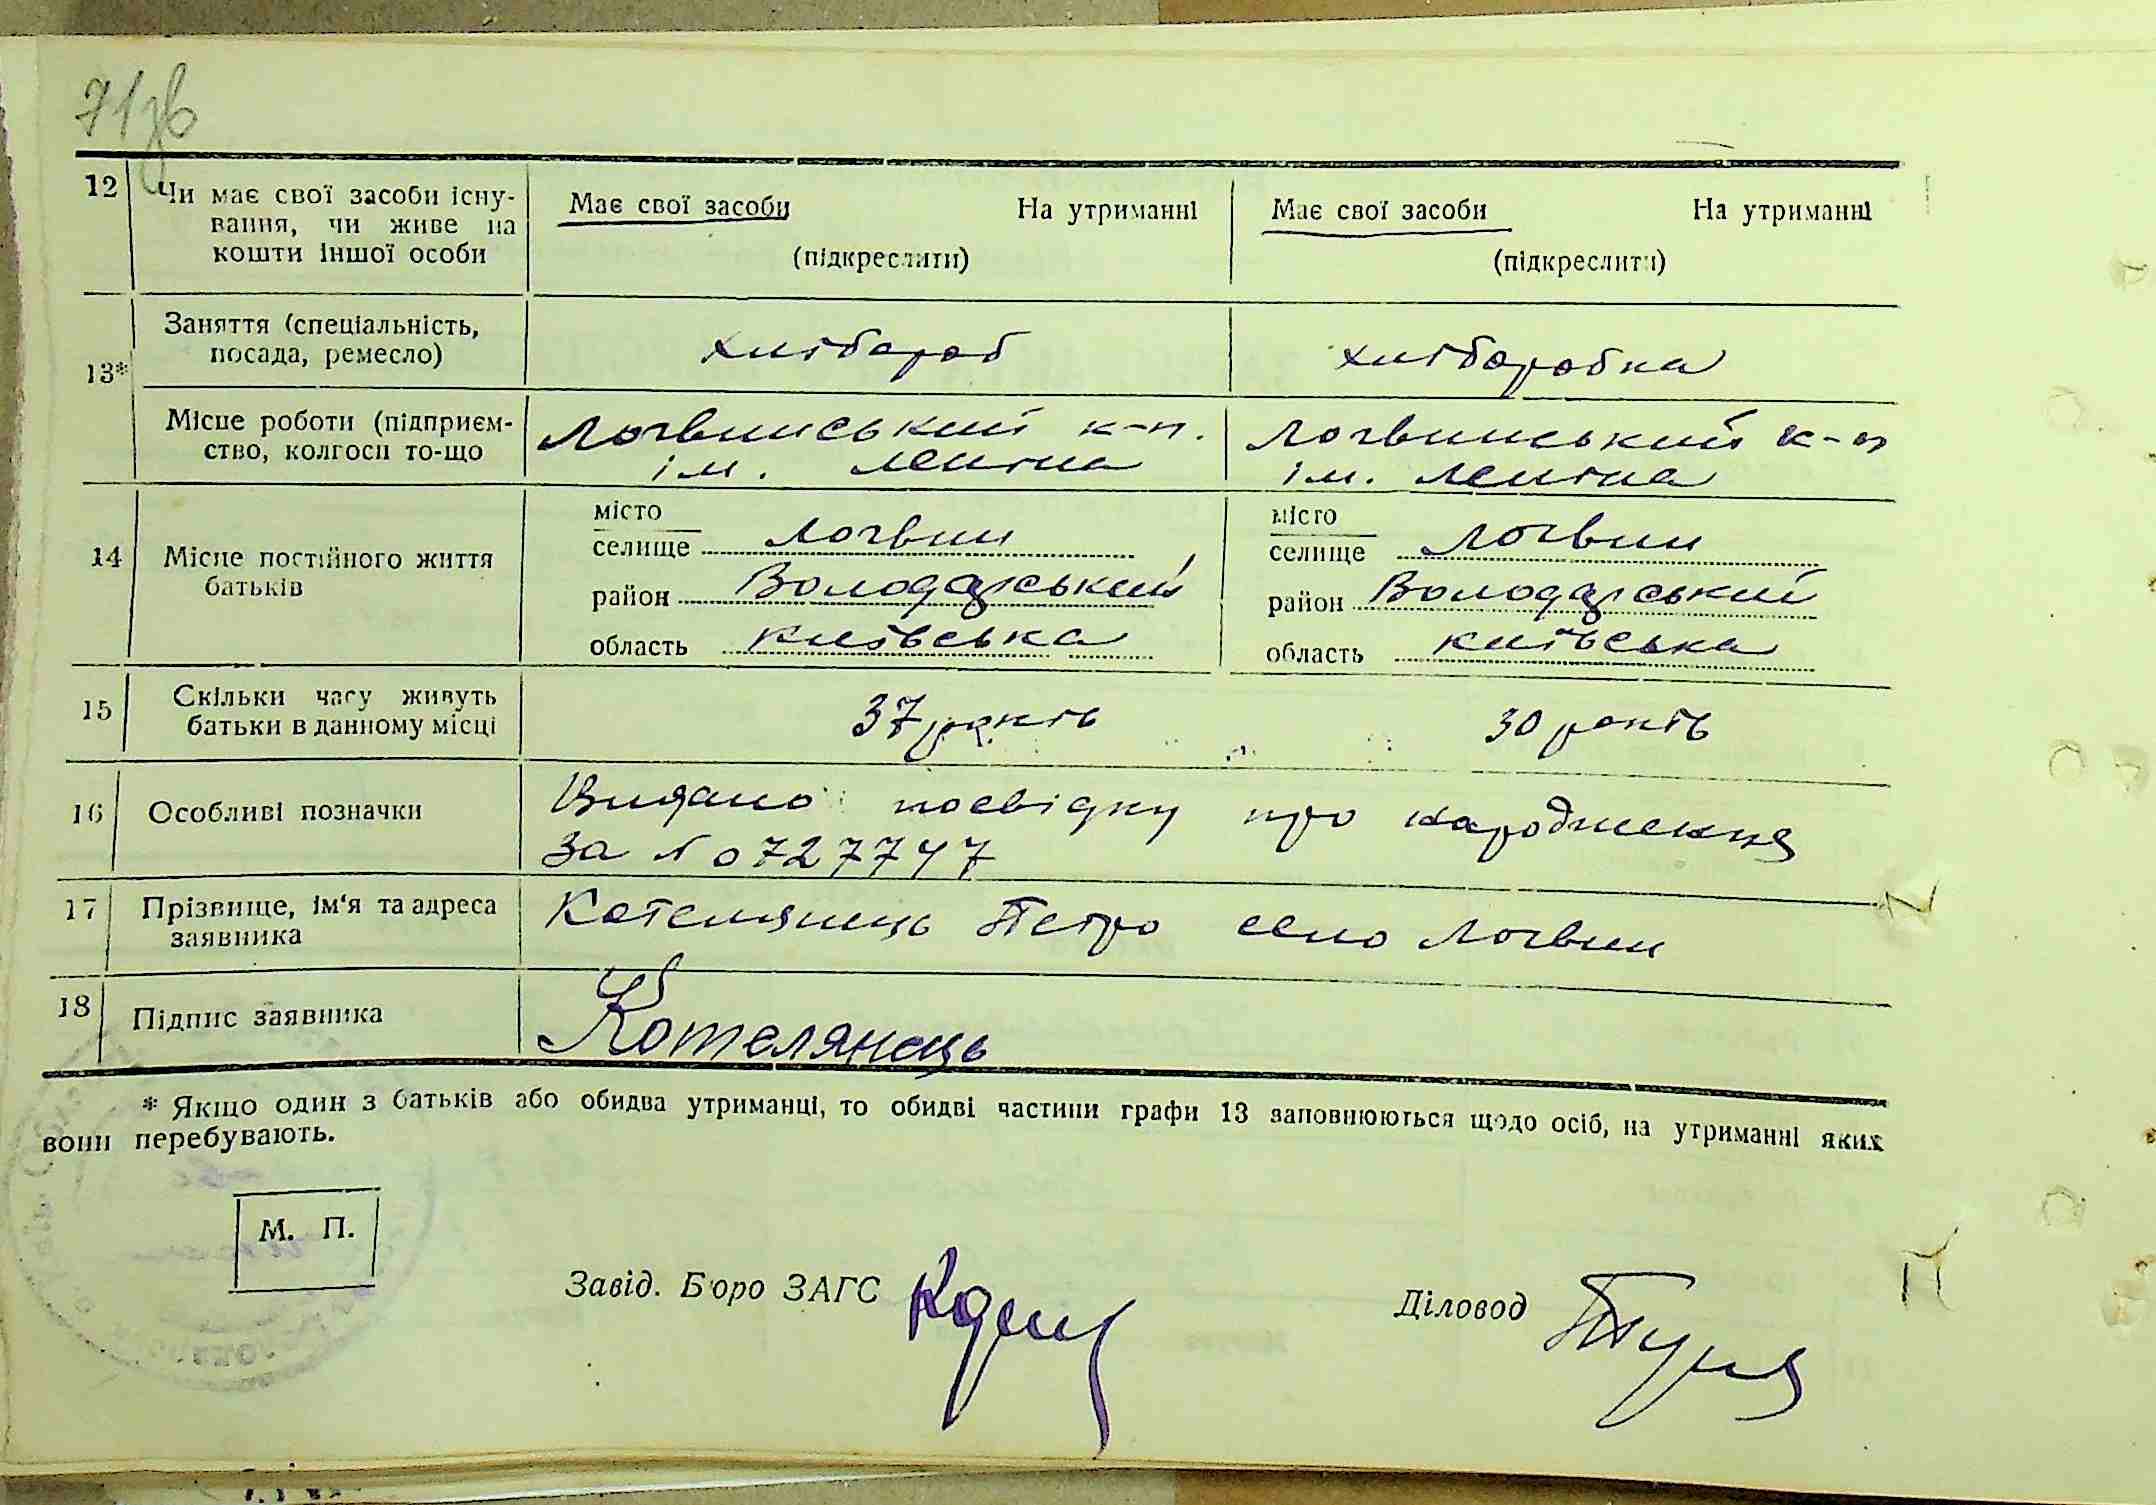 71зв
12 Чи має свої засоби існу- Має свої засоби На утриманні Має свої засоби На утриманні
вання, чи живе на
кошти іншої особи (підкреслити) (підкреслити)
13* Заняття (спеціальність, хлібороб хліборобка
посада, ремесло)
Місце роботи (підприєм- Логвинський к-п. Логвинський к-п
ство, колгосп то-що ім. Леніна ім. Леніна
14 Місце постійного життя батьків
місто місто
селище Логвин селище Логвин
район Володарський район Володарський
область київська область київська
15 Скільки часу живуть 37 років 30 років
батьки в данному місці
16 Особливі позначки Видано посвідку про народження
за № 0727747
17 Прізвище, ім'я та адреса Котелянець Петро село Логвин
заявника
18 Підпис заявника Котелянець
* Якщо один з батьків або обидва утриманці, то обидві частини графи 13 заповнюються щодо осіб, на утриманні яких
вони перебувають.
М. П.
Завід. Бюро ЗАГС Діловод